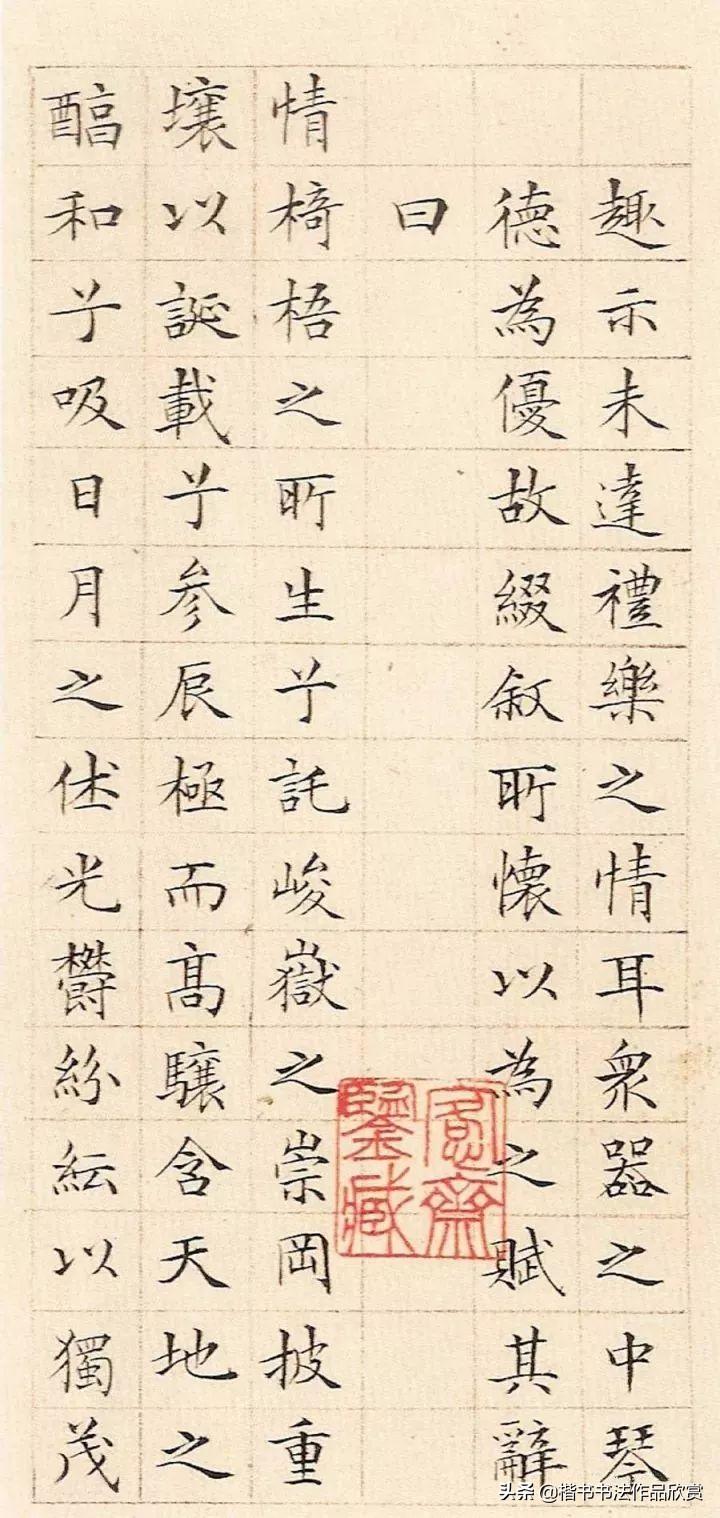 趣示未達禮樂之情耳衆器之中琴
德為優故綴叙所懷以為之賦其辭
曰
情椅梧之所生兮託峻嶽之崇岡披重
壤以誕載兮参辰極而髙驤含天地之
醕和兮吸日月之休光鬱紛紜以獨茂
愙齋鑒藏
头条 @楷书书法作品欣赏